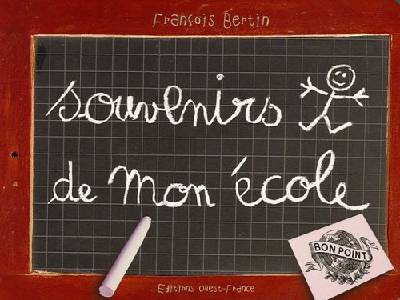 François Bertin
souvenirs
de mon école
BON POINT
Editions Ouest-France